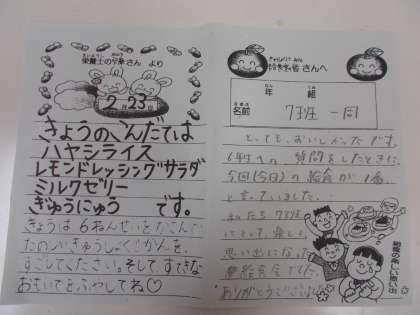 栄養士の
さん より
2月23日
きょうのこんだては
ハヤシライス
レモンドレッシングサラダ
ミルクゼリー
ぎゅうにゅう です。
きょうは6ねんせいをかこんで
たのしいきゅうしょくじかんを、
すごしてください。そして、すてきな
おもいでをふやしてね♡
さんへ
年 組
名前
7班 一同
とっても、おいしかったです。
6年生への質問をしたときに、
今回(今日)の給食が1番
と言っていました。
私たち7班
にとって、楽しく
思い出になった
給食会でした。
ありがとうございました